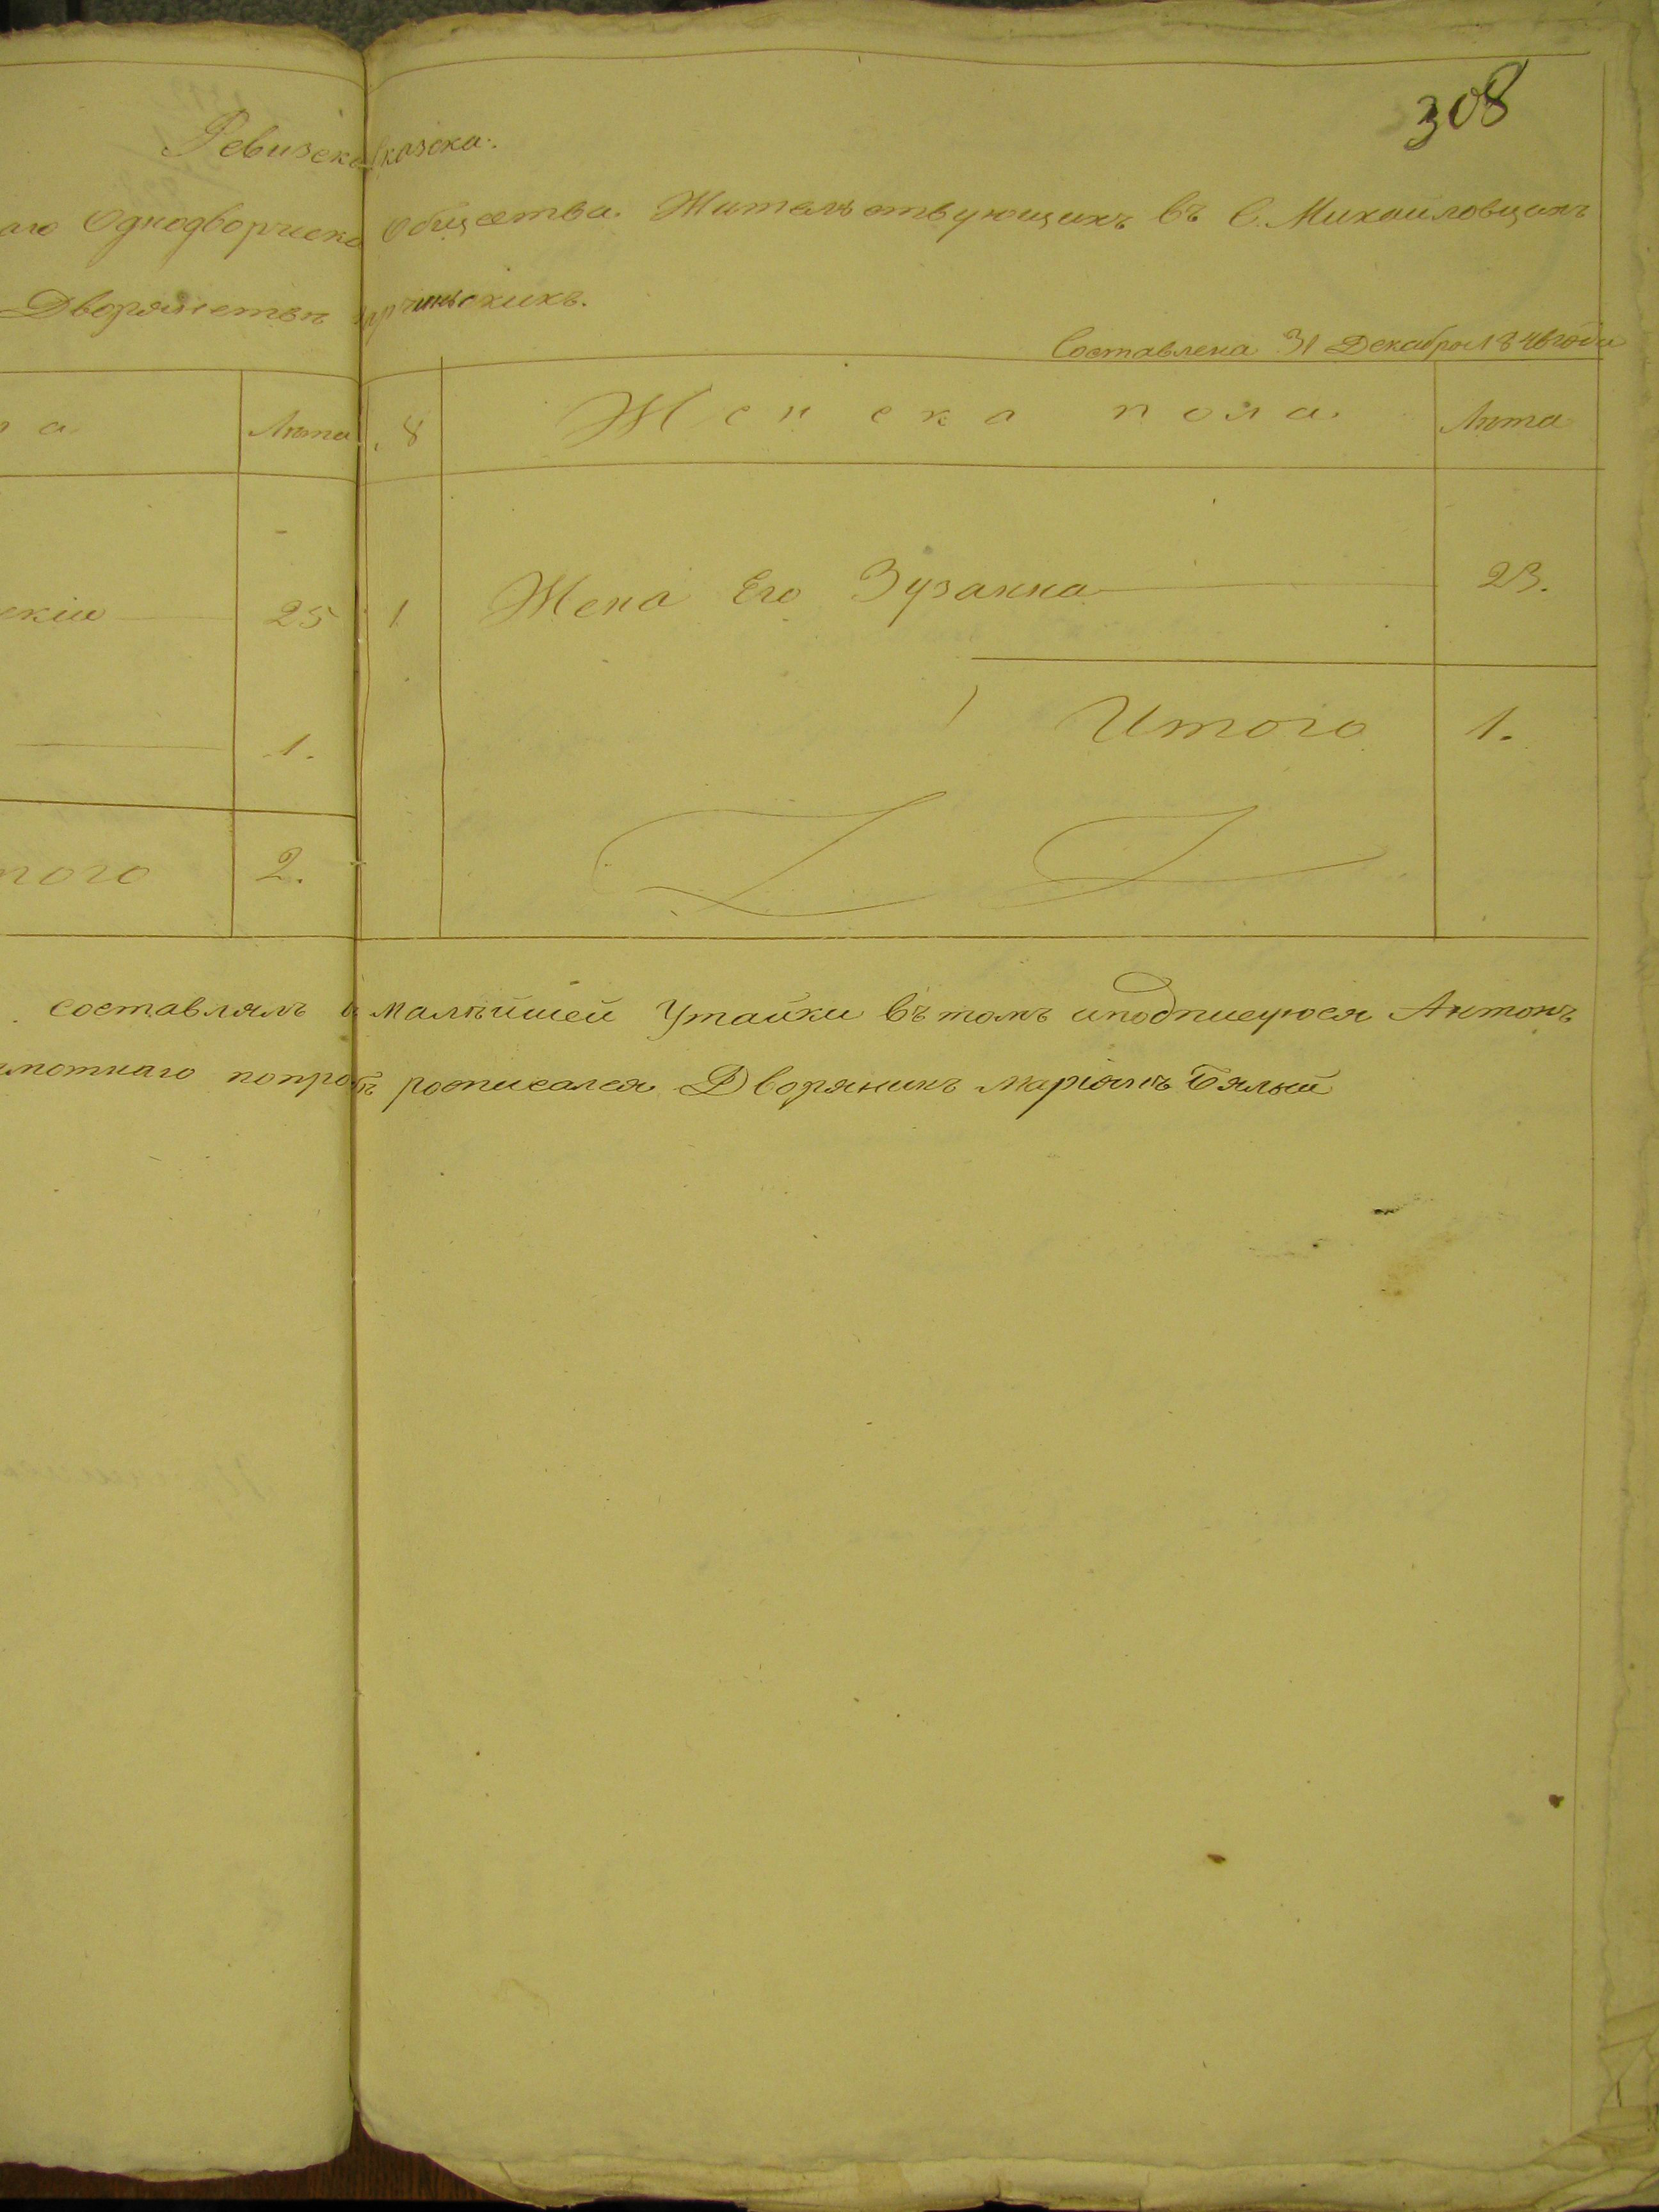 308
Ревизска сказска:
аго Однодворческа Общества. Жительствующихъ въ С. Михайловцахъ
Дворянствѣ
Составлена 31 Декабря 1846 года
а Лѣта 8 Женска пола. Лѣта
скій 25 1 Жена Его Зузанна 23.
1.
Итого 1.
того 2.
составлялъ малѣйшей Утайки въ томъ иподписуюся Антонъ
мотнаго росписался Дворянинъ Маріянъ Бялый